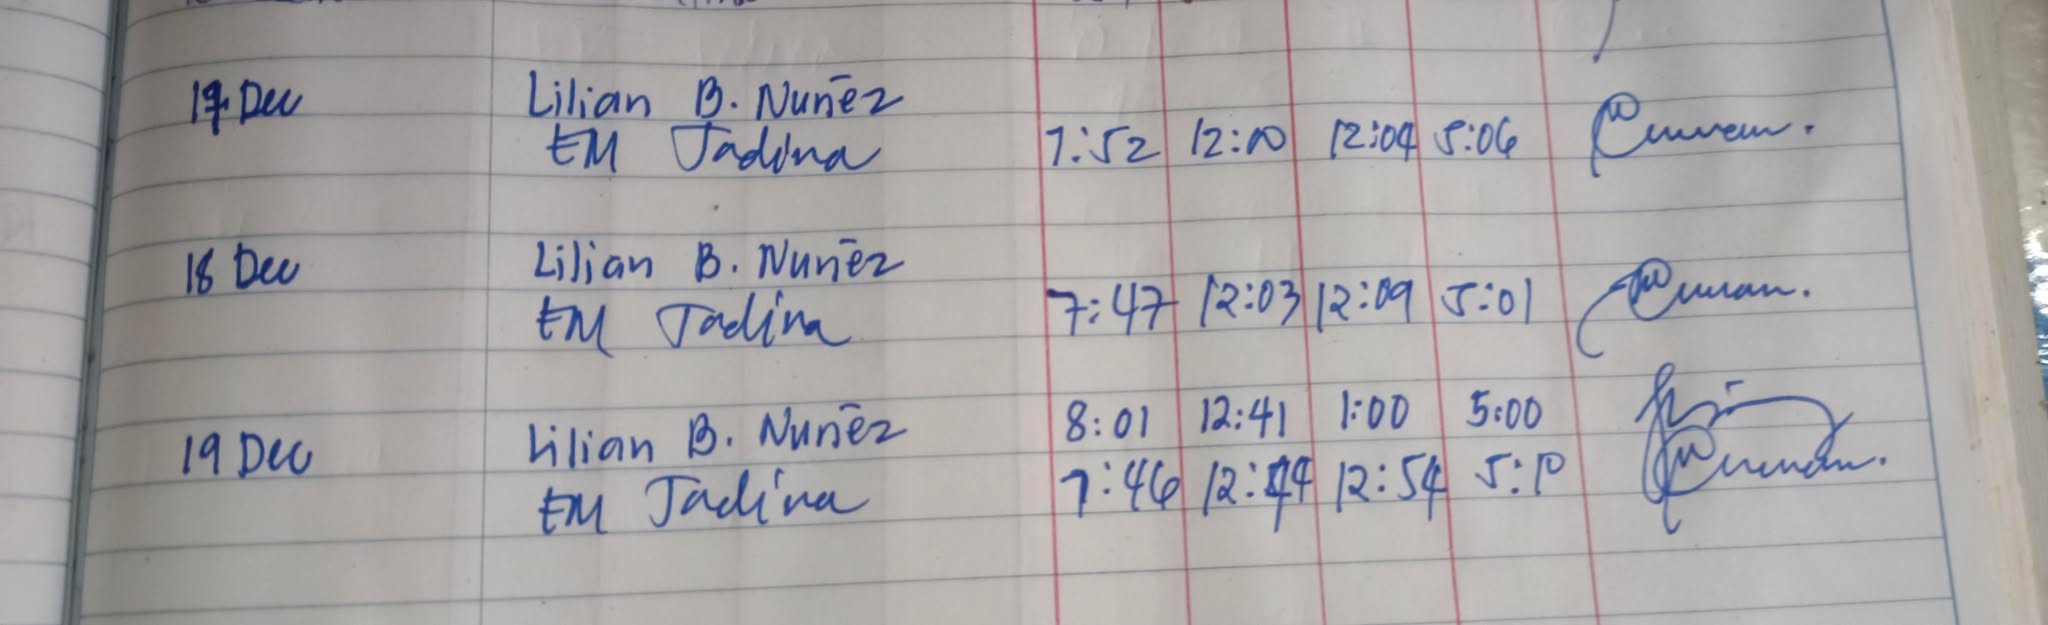 17 Dec Lilian B. Nuñez
EM Jadina 7:52 12:00 12:04 5:06
18 Dec Lilian B. Nuñez
EM Jadina 7:47 12:03 12:09 5:01
19 Dec Lilian B. Nuñez 8:01 12:41 1:00 5:00
EM Jadina 7:46 12:44 12:54 5:10